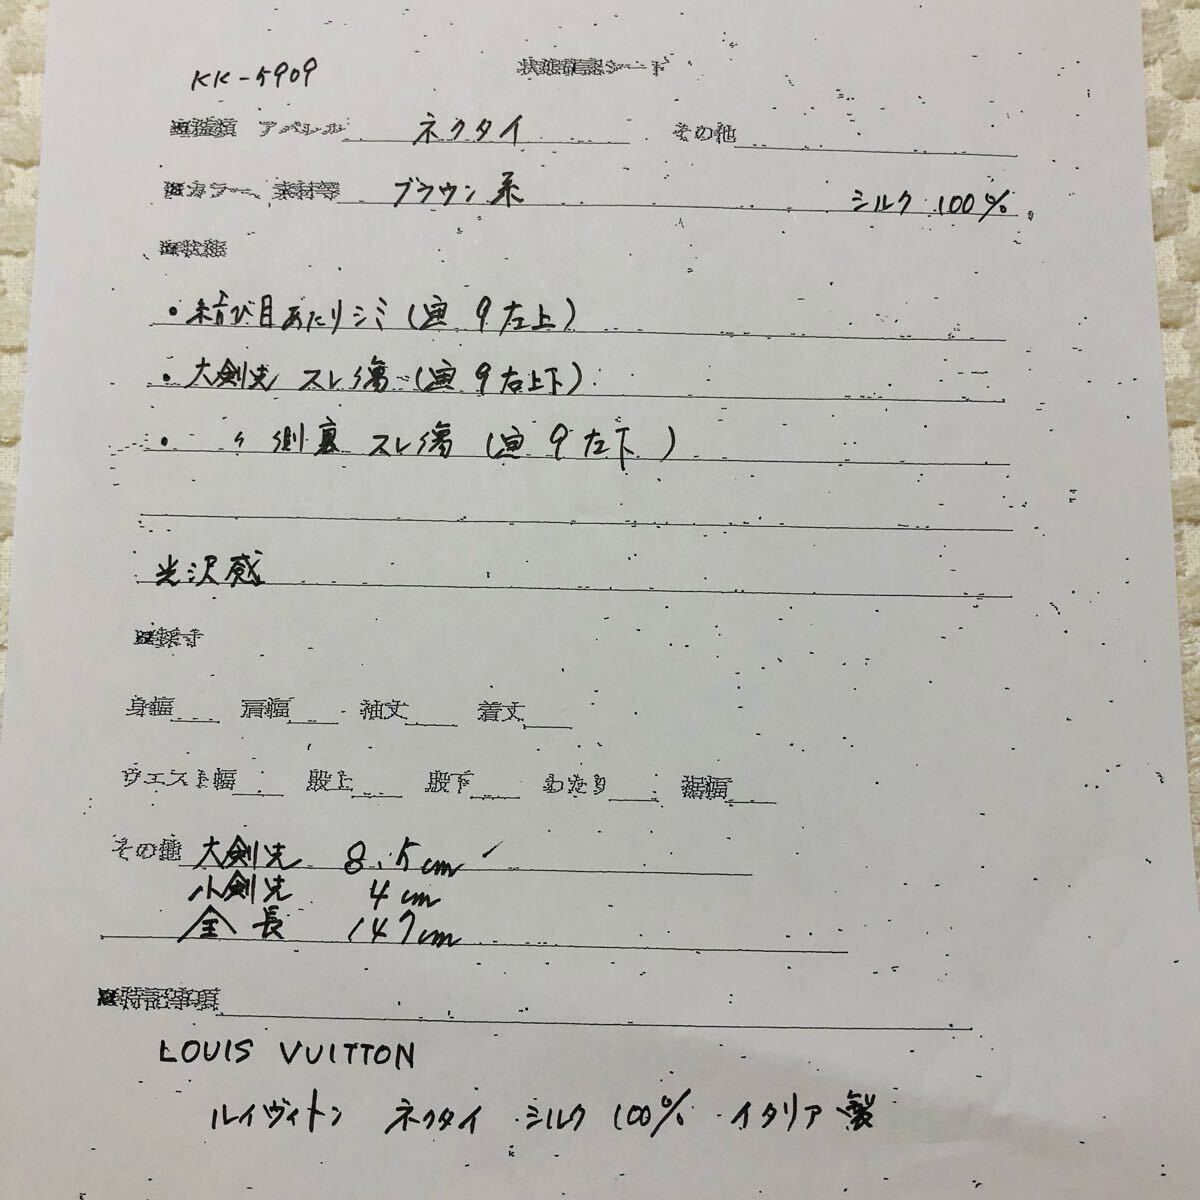 KK-5909 状態確認シート
■種類 アパレル ネクタイ その他
■カラー、素材等 ブラウン系 シルク 100%
■状態
・結び目あたりシミ(画 9左上)
・大剣先 スレ傷(画 9右上下)
・ 〃 側裏 スレ傷(画 9左下)
光沢感
■採寸
身幅 肩幅 袖丈 着丈
ウエスト幅 股上 股下 わたり 裾幅
その他 大剣先 8.5cm
小剣先 4cm
全長 147cm
■特記事項
LOUIS VUITTON
ルイヴィトン ネクタイ シルク 100% イタリア製